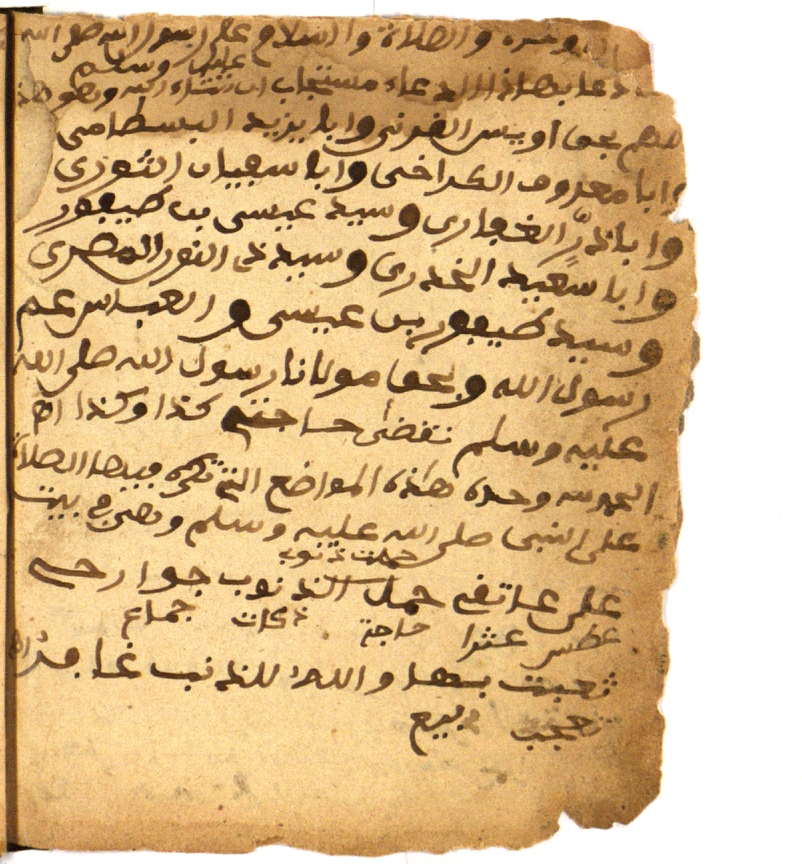 لله وحده والصلاة والسلام على رسول الله صلى الله
عليه وسلم
دعا بهاذا الدعاء مستجاب ان شاء الله وهو هذا
اللهم بحق اويس القرني وابا يزيد البسطامي
وابا معروف الكراخي وابا سفيان الثوري
وابا ذرّ الغفاري وسيد عيسى بن طيفور
وابا سعيد الخدري وسيد ذي النور المصري
وسيد طيفور بن عيسى والعباس عم
رسول الله وبحق مولانا رسول الله صلى الله
عليه وسلم تقضى حاجتي كذا وكذا اه
الحمد لله وحده هذه المواضع التي تكره فيها الصلاة
على النبي صلى الله عليه وسلم وهي في بيت
حملت ذنوب
على عاتقي حمل الذنوب جوارحي
عطس عثرا حاجة ذكات جماع
تعبت بها والله للذنب غافر اه
تعجب بيع